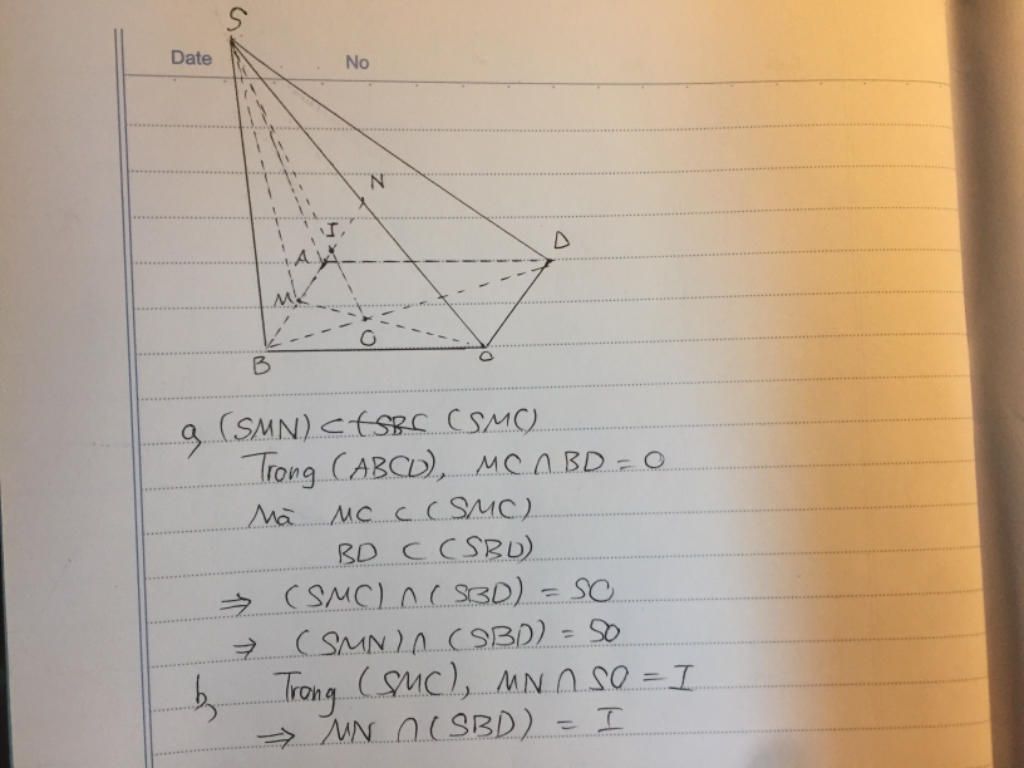 S
Date No
N
I
D
A
M
O
B
a, (SMN) ⊂ (SBC (SMC)
Trong (ABCD), MC ∩ BD = O
Mà MC ⊂ (SMC)
BD ⊂ (SBD)
⇒ (SMC) ∩ (SBD) = SO
⇒ (SMN) ∩ (SBD) = SO
b, Trong (SMC), MN ∩ SO = I
⇒ MN ∩ (SBD) = I